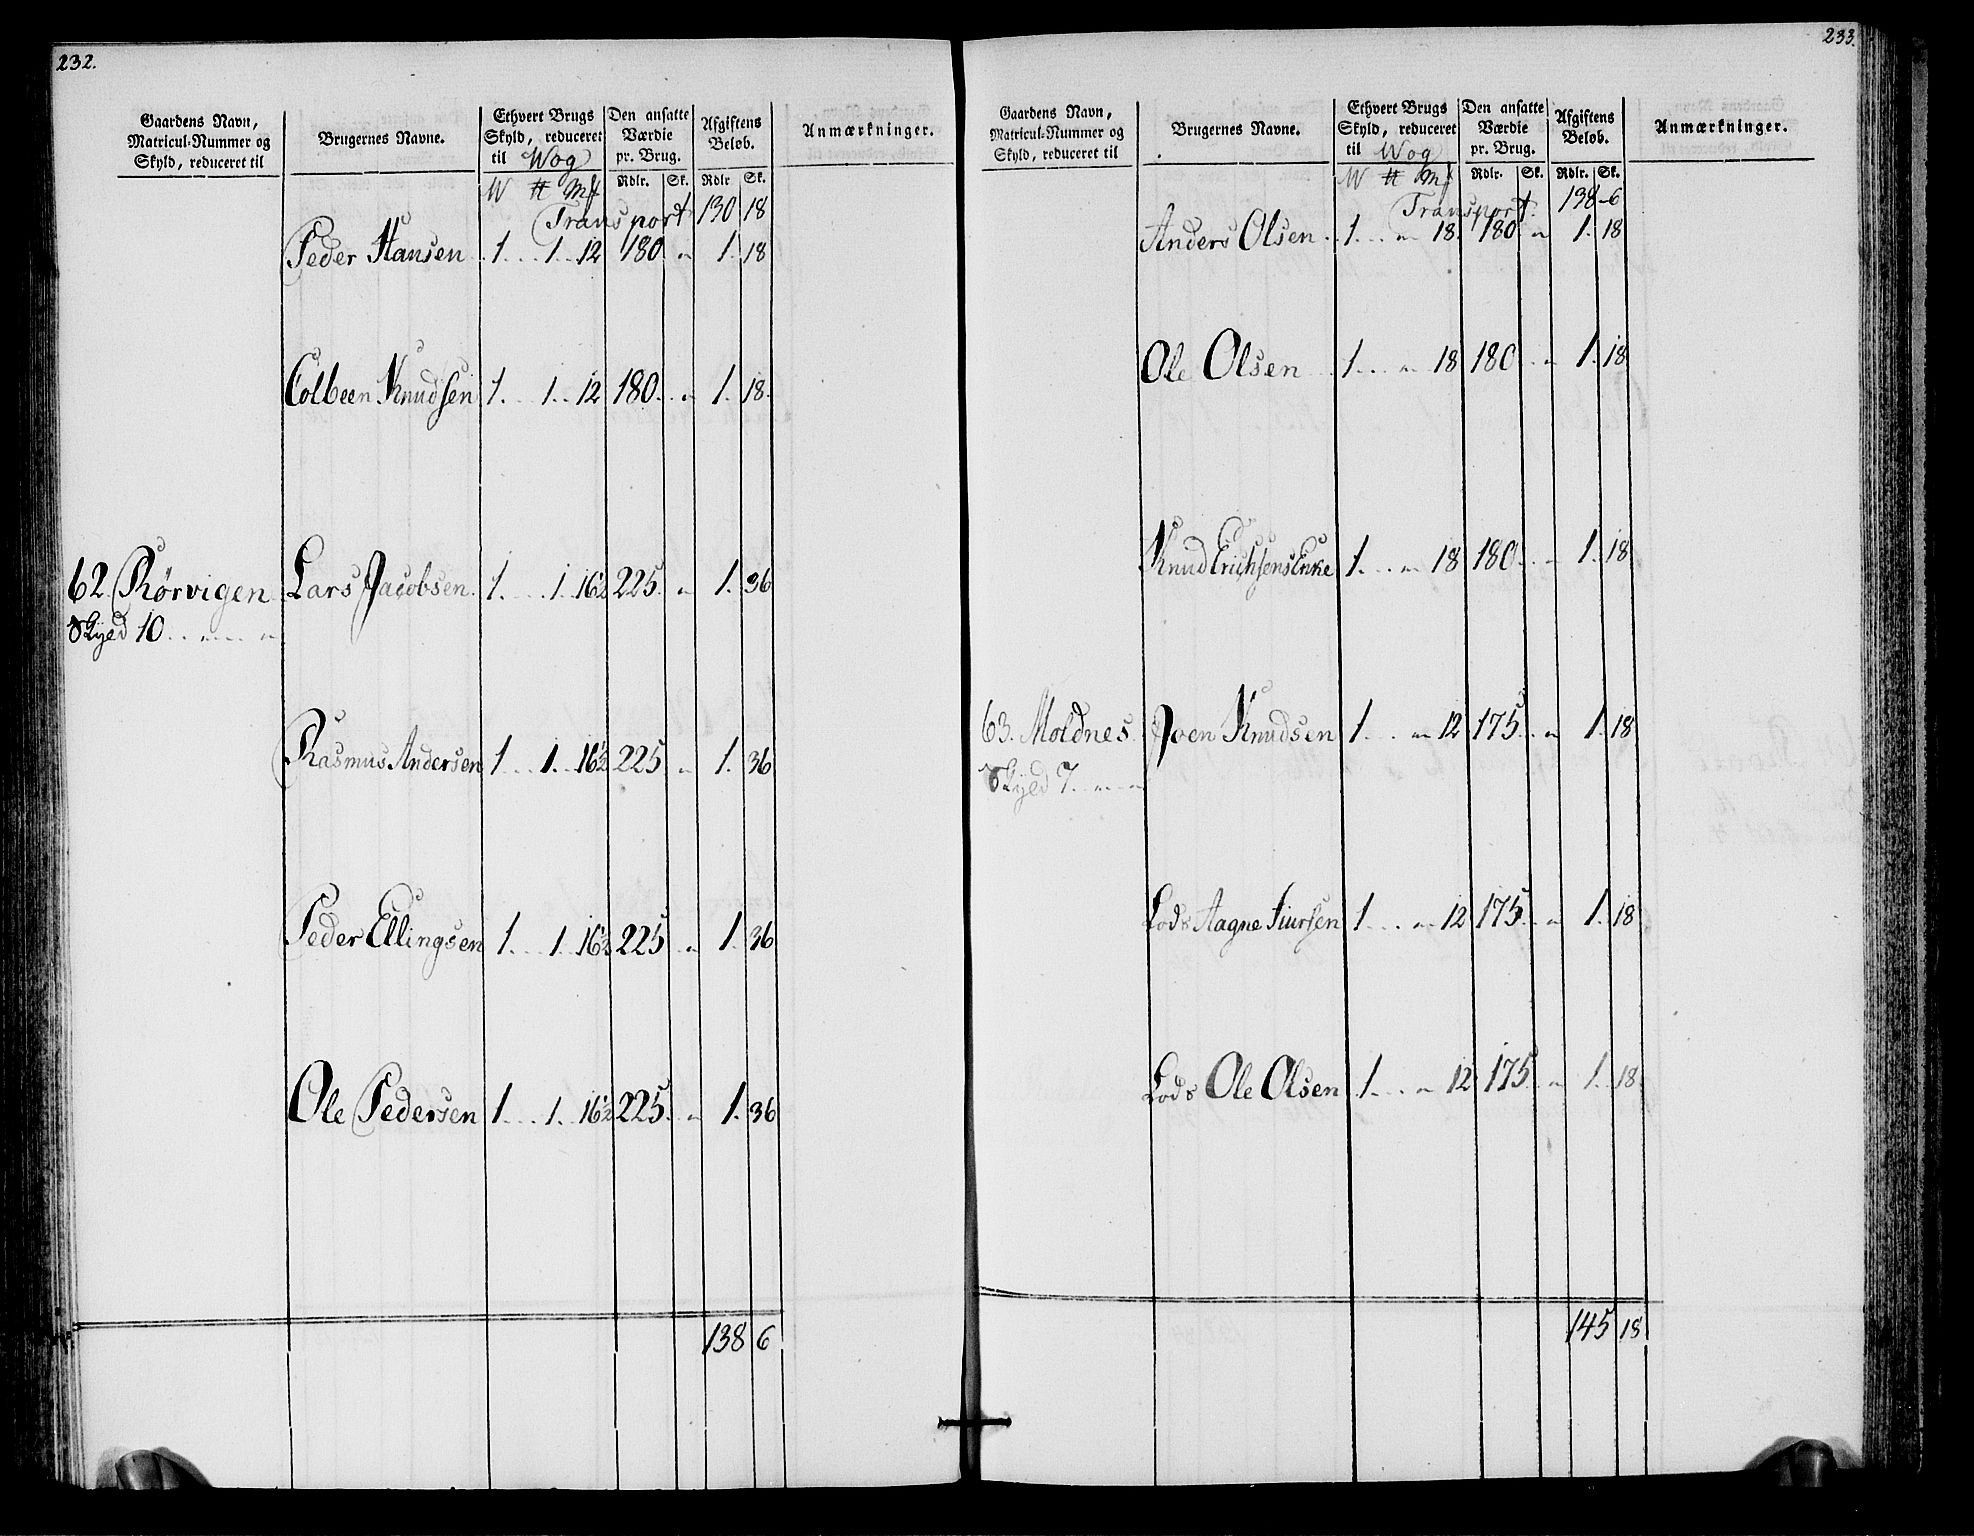 232.
Gaardens Navn, Matricul-Nummer og Skyld, reduceret til | Brugernes Navne. | Ethvert Brugs Skyld, reduceret til Wog | Den ansatte Værdie pr. Brug. | Afgiftens Beløb. | Anmærkninger.
W ℔ Mk | Rdlr. Sk. | Rdlr. Sk.
Transport 130 18
Peder Hansen 1 . . 1 . 12 180 . „ 1. 18
Colbeen Knudsen 1. . . 1. . 12 180. . „ 1. 18.
62. Rørvigen Lars Jacobsen. 1. . . 1 16½ 225. „ 1. 36
Skyld 10 . . „ . . „
Rasmus Andersen 1. . . 1. . 16½ 225 „ 1. 36
Peder Ellingsen 1. . . 1. 16½ 225 „ 1. 36
Ole Pedersen 1. . . 1. 16½ 225. „ 1. 36
138 6
233.
Gaardens Navn, Matricul-Nummer og Skyld, reduceret til | Brugernes Navne. | Ethvert Brugs Skyld, reduceret til Wog | Den ansatte Værdie pr. Brug. | Afgiftens Beløb. | Anmærkninger.
W ℔ Mk | Rdlr. Sk. | Rdlr. Sk.
Transport. 138 6
Anders Olsen. 1. . . „ 18. 180 „ 1. 18
Ole Olsen 1. . . „ 18 180 . „ 1. 18
Knud Erichsens Enke 1. . . „ 18 180. . „ 1. 18
63. Moldnes Joen Knudsen 1. . . „ 12 175. . „ 1. 18
Skyld 7. . „ . „
Lods Aagne Siursen 1. . . „ 12 175. . „ 1. 18
Lods Ole Olsen 1. . . „ 12 175. „ 1. 18
145 18